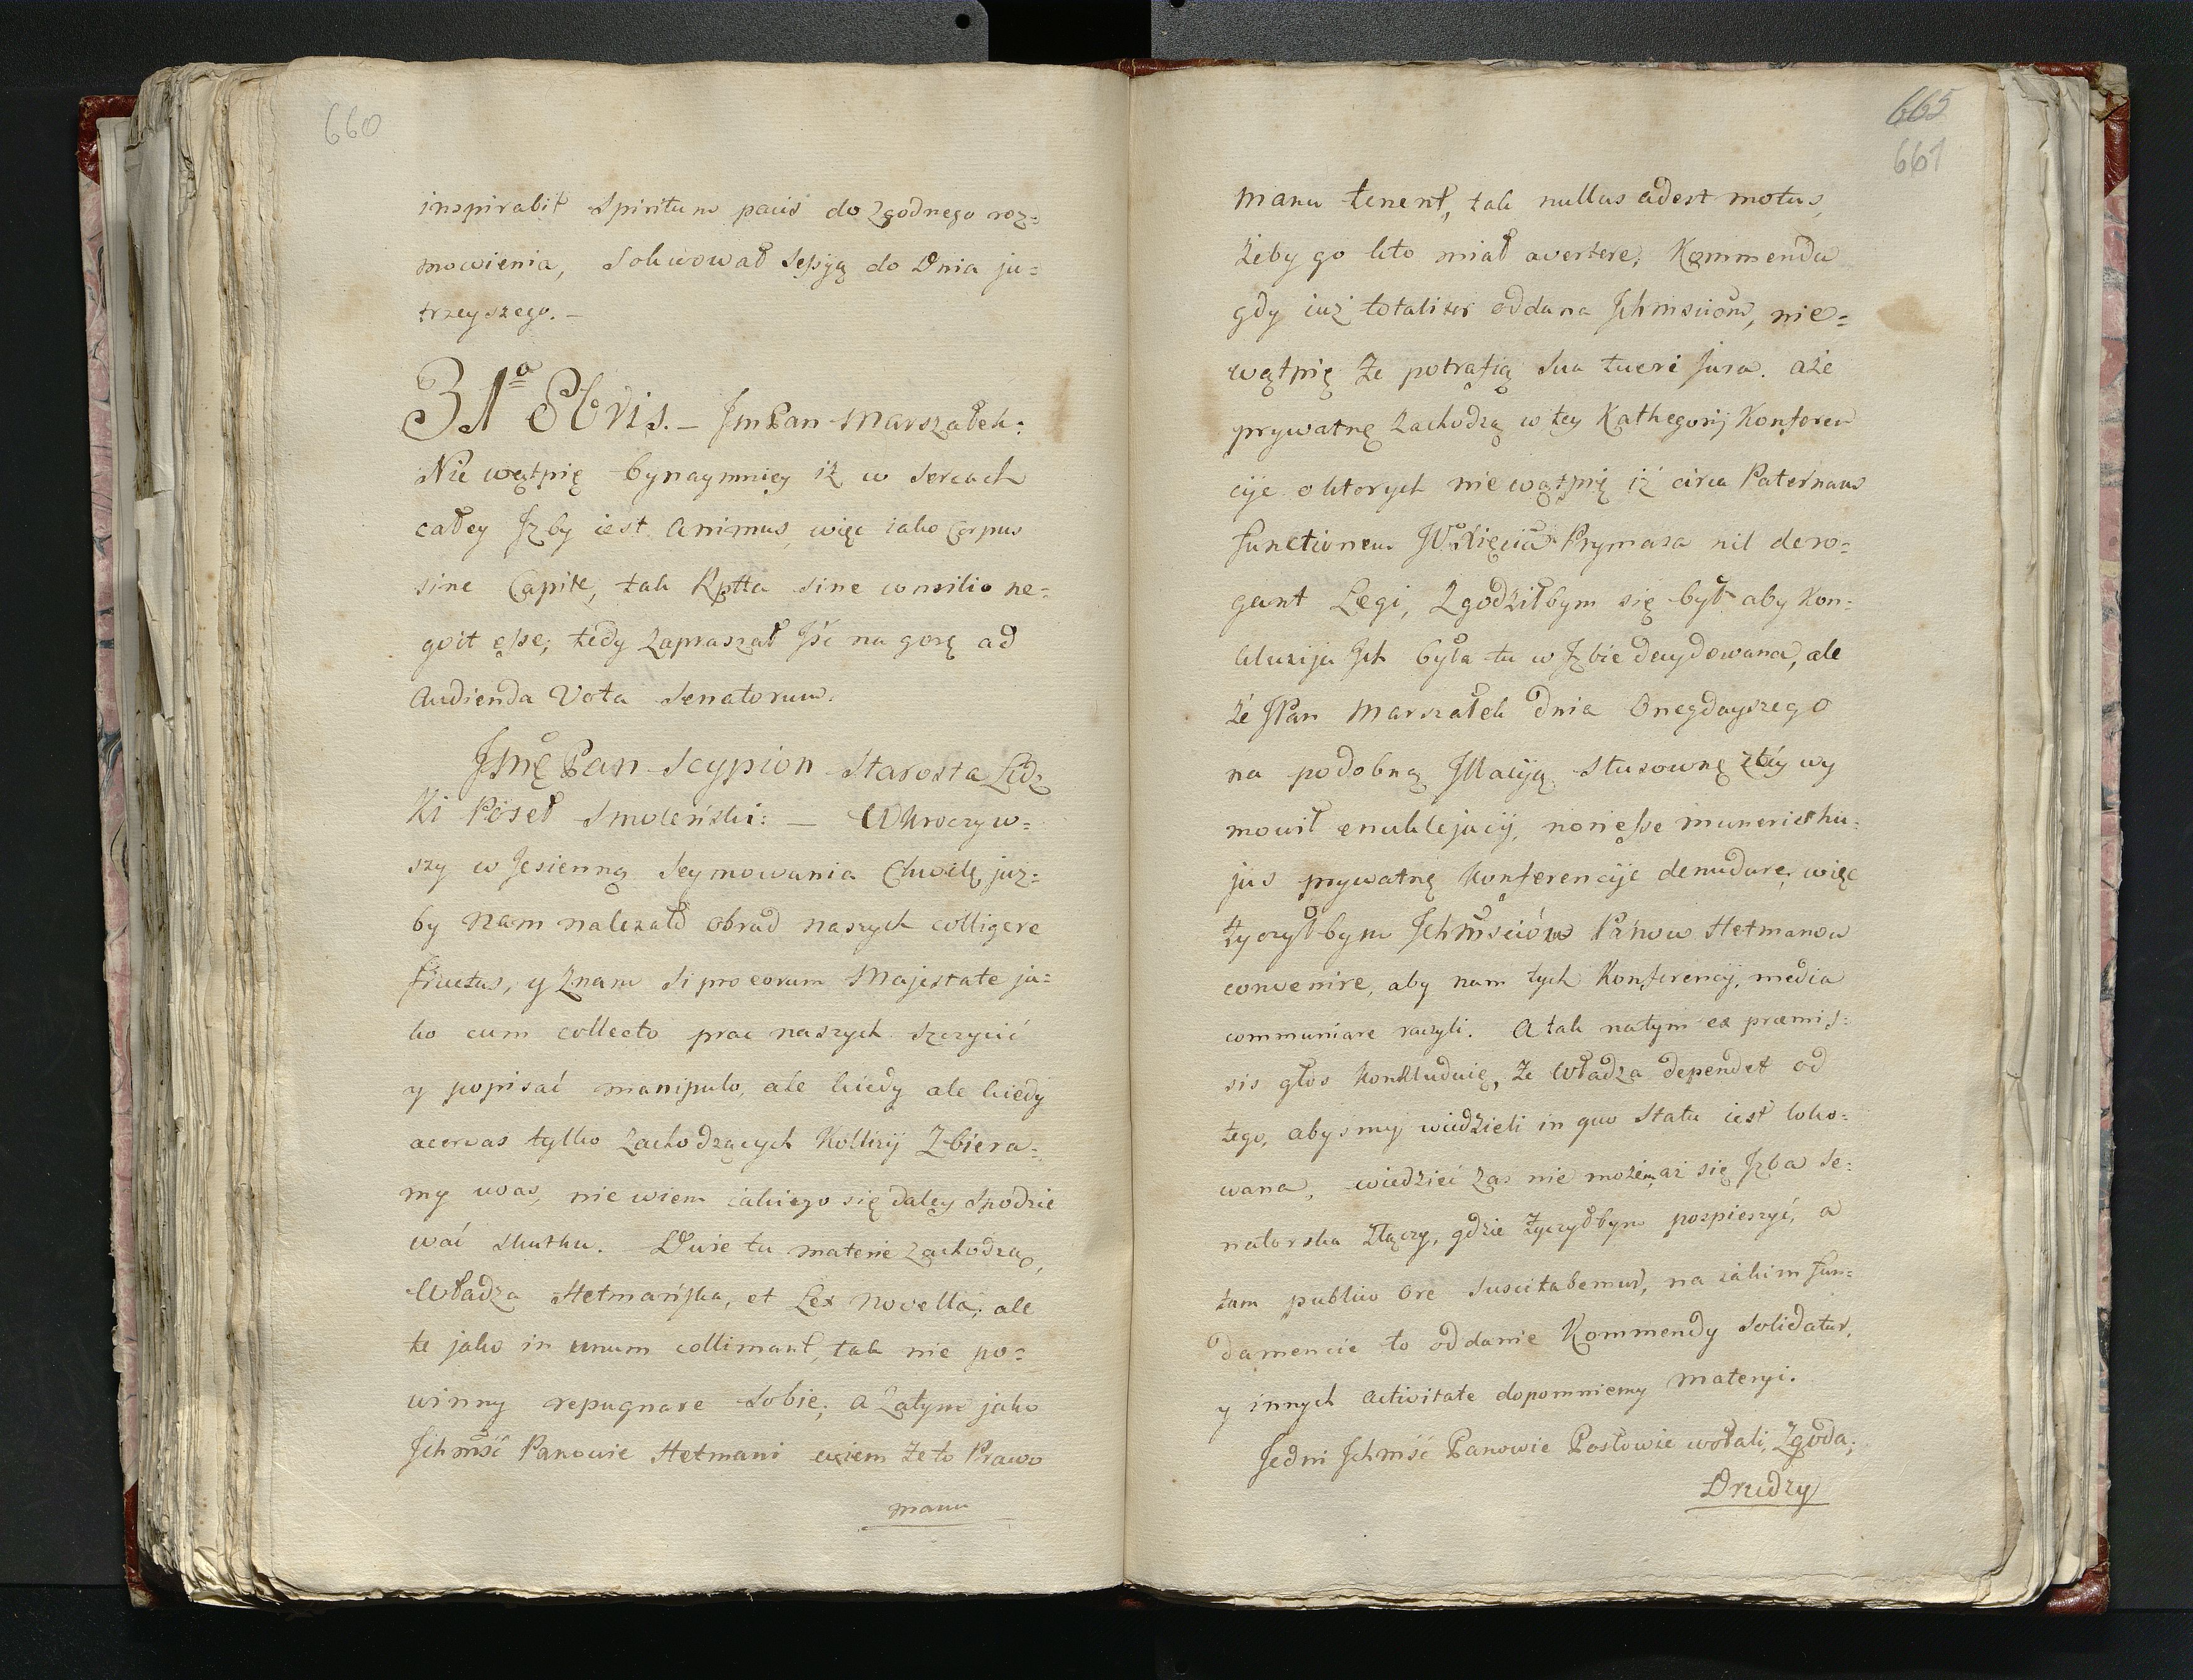 660
inspirabit Spiritum pacis do zgodnego roz=
mowienia, Solwował Sessyą do Dnia ju=
trzeyszego. –
31ª 8bris. – JmPan Marszałek:
Nie wątpię bynaymniey iż w Sercach
całey Jzby iest animus, więc iako Corpus
sine Capite, tak Rptta sine consilio ne=
goit esse; tedy zapraszał Jść na gorę ad
audienda Vota Senatorum.
Jmę Pan Scypion Starosta Lidz
ki Poseł Smoleński: – Wkroczyw=
szy w Jesienną Seymowania Chwilę, już=
by nam należało obrad naszych colligere
fructus, y znam Si pro eorum Majestate ja=
ko cum collecto prac naszych szczycić
y popisać manipulo, ale kiedy ale kiedy
acervas tylko zachodzących Kollizij zbiera=
my uvas, nie wiem iakiego się daley spodzie
wać skutku. Dwie tu materie zachodzą,
Władza Hetmańska, et Lex novella; ale
te jako in unum collimant, tak nie po=
winny repugnare sobie; a zatym jako
Jchmść Panowie Hetmani wiem że to Prawo
manu
665
661
manu tenent, tak nullus adest motus,
żeby go kto miał avertere; Kommenda
gdy iuż totaliter oddana Jchmsciom, nie=
wątpię że potrafią sua tueri jura. aże
prywatnę zachodzą w tey Kathegorij Konferen
cije o ktorych nie wątpię iż circa Paternam
functionem JW. Xięcia Prymasa nil dero=
gant Legi, zgodziłbym się był aby kon=
kluzija Jch była tu w Jzbie decydowana, ale
że JPan Marszałek dnia Onegdayszego
na podobną Jllacyą stusownę z tey wy
mowił enuklejacij, non esse muneris hu=
jus prywatnę konferencije denudare, więc
życzyłbym Jchmściów Panow Hetmanow
convenire, aby nam tych Konferencij, media
communiare raczyli. A tak natym ex præmis=
sis głos konkluduię, że władza dependet od
tego, abysmy wiedzieli in quo Statu iest loko=
wana, wiedzieć zas nie możem, aż się Jzba Se=
natorska złączy, gdzie życzyłbym pospieszyć, a
tam publico ore suscitabemus, na iakim fun=
damencie to oddanie Kommendy solidatur,
y innych activitate dopomniemy materyi.
Jedni Jchmść Panowie Posłowie wołali, Zgoda;
Drudzy